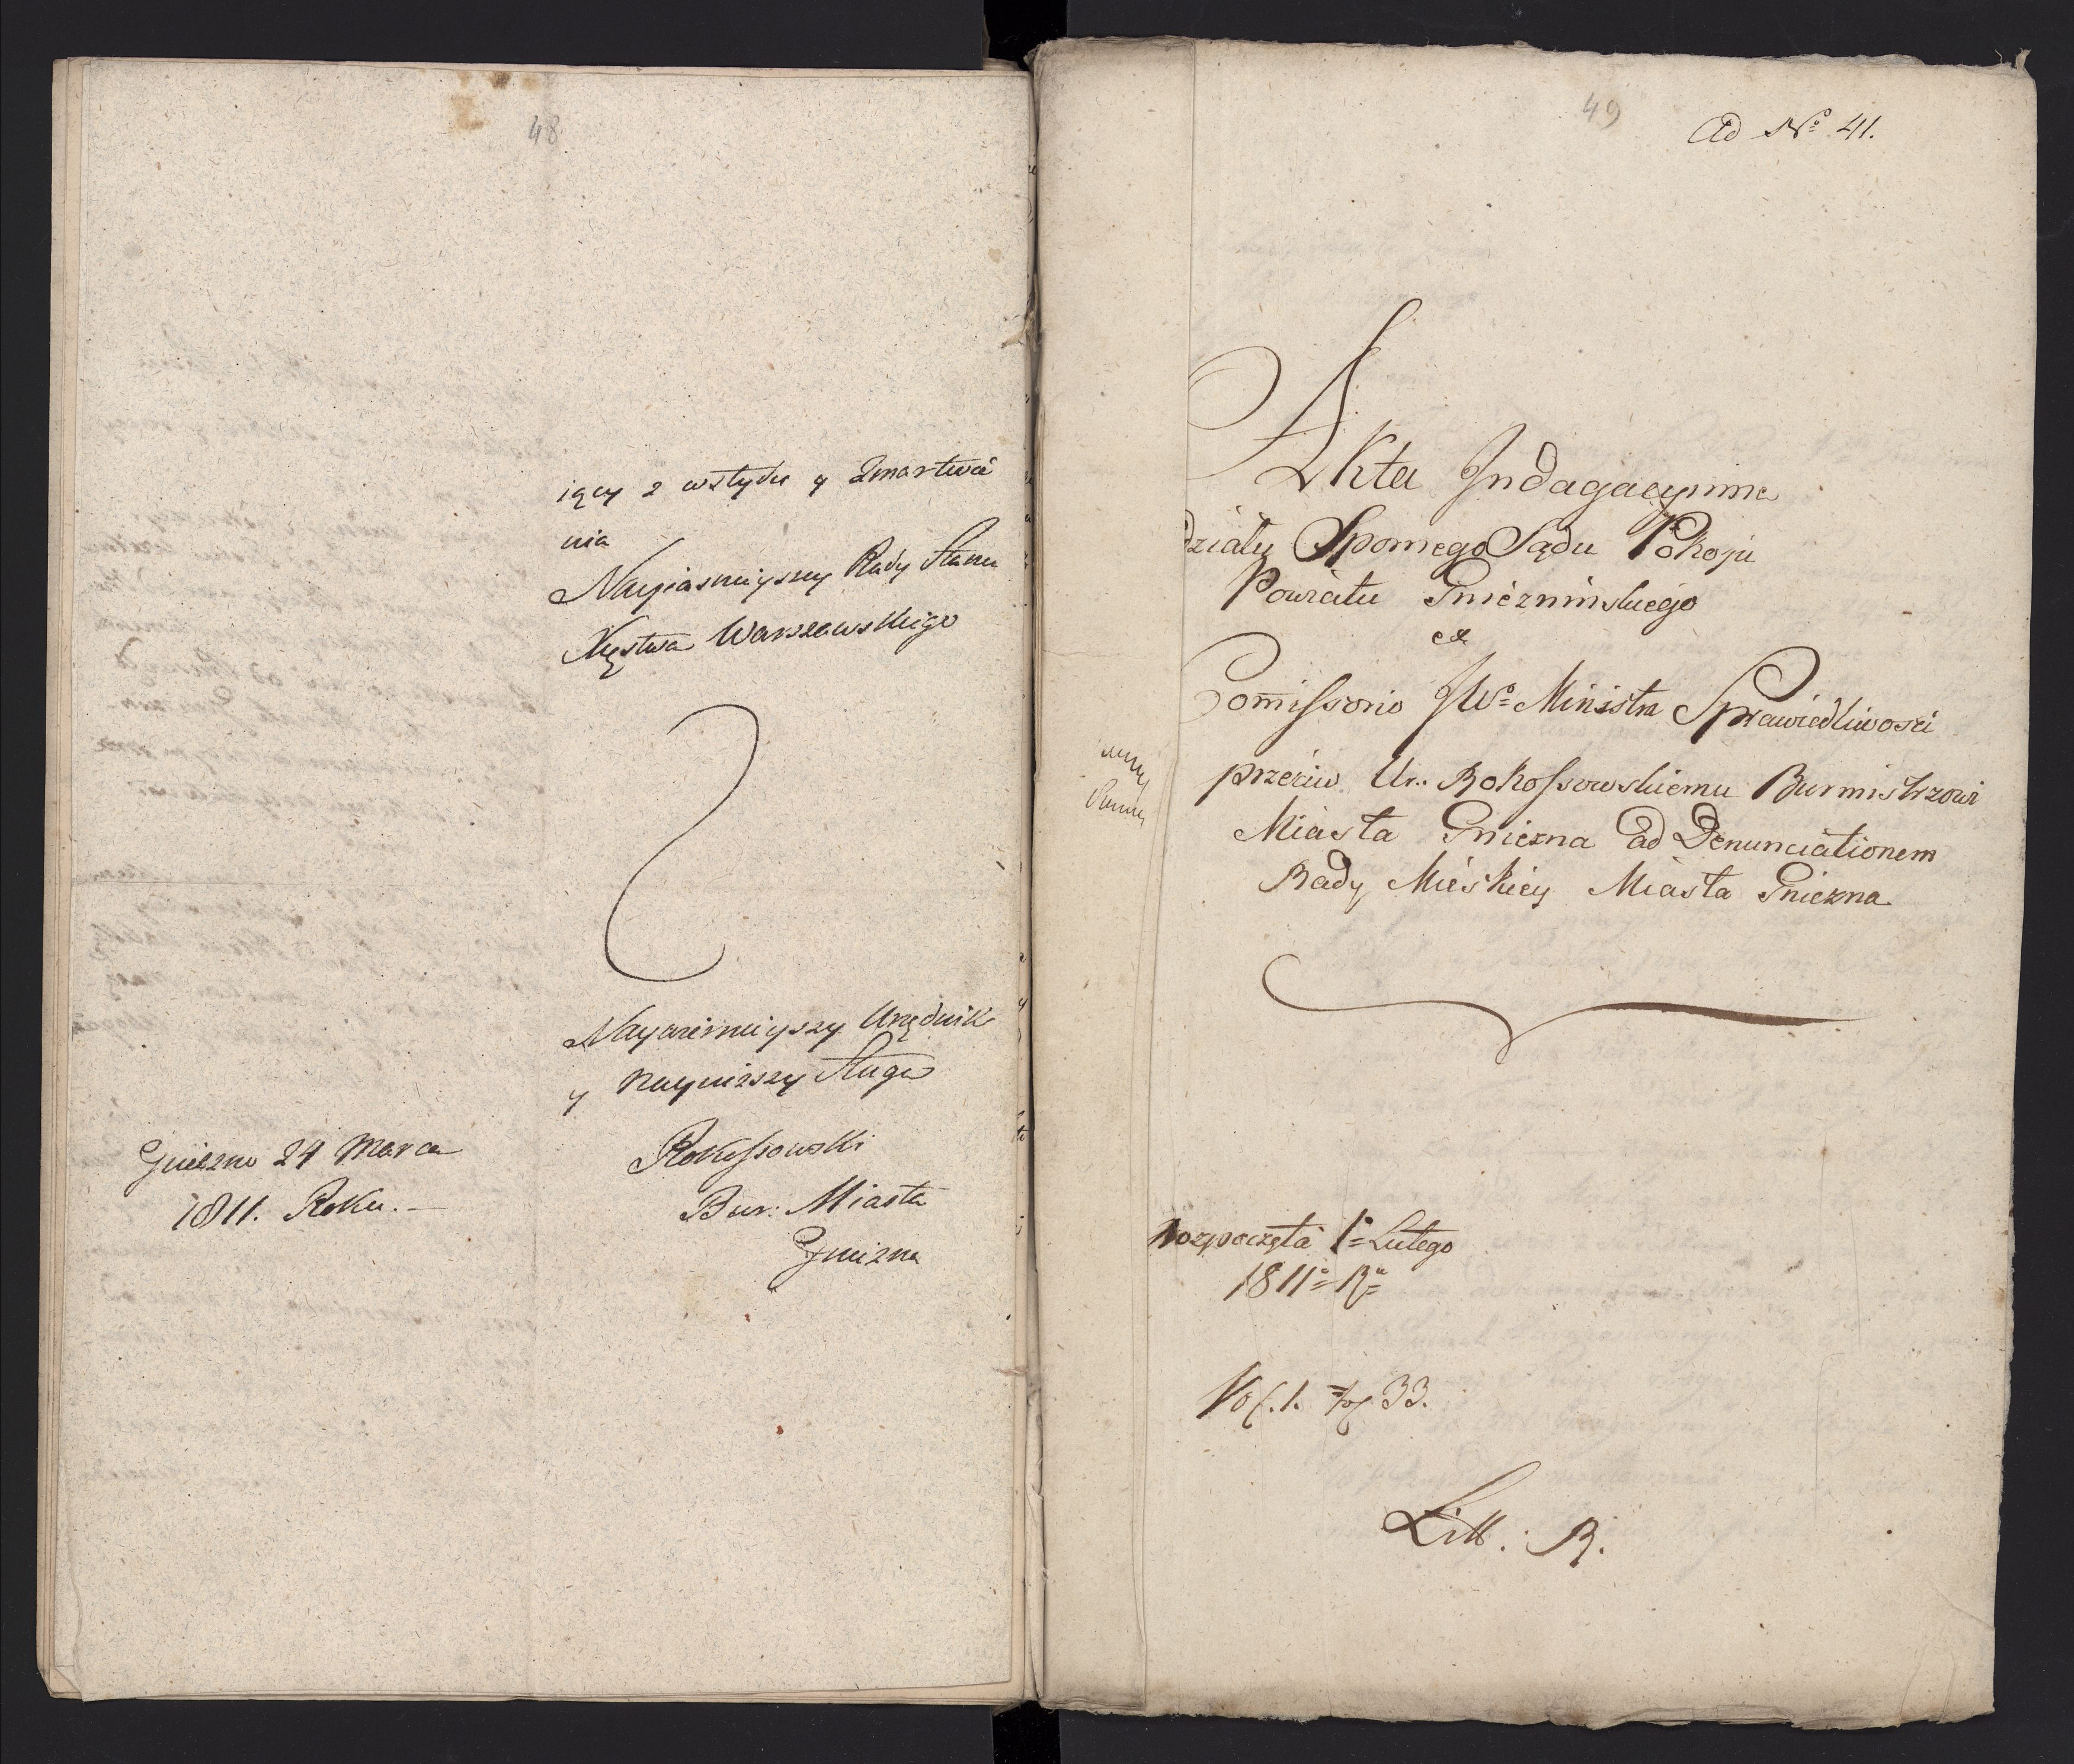 48
iący z wstydu y zmartwie
nia
Nayiasnieyszey Rady Stanu
Xięstwa Warszawskiego
Naywiernieyszy Urzędnik
y nayniższy Sługa
Rokossowski
Bur: Miasta
Gniezna
Gniezno 24 Marca
1811. Roku. –
49
Ad No 41.
Akta Indagacyinne
działu Spornego Sądu Pokoju
Powiatu Gnieznińskiego
ex
Comissorio JWo Ministra Sprawiedliwości
przeciw Ur: Rokossowskiemu Burmistrzowi
Miasta Gniezna ad Denunciationem
Rady Mieskiey Miasta Gniezna
rozpoczęta 1o Lutego
1811o Ru
Vol. 1. 33.
Litt: R.